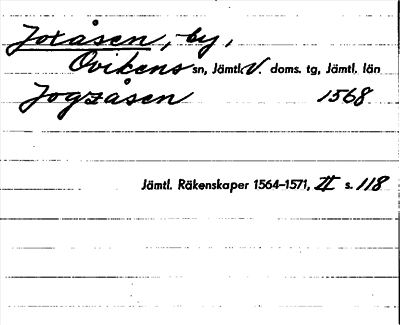 Joxåsen, by,
Ovikens sn, Jämtl. V. doms. tg, Jämtl. län
Jogzåsen 1568
Jämtl. Räkenskaper 1564–1571, II s. 118